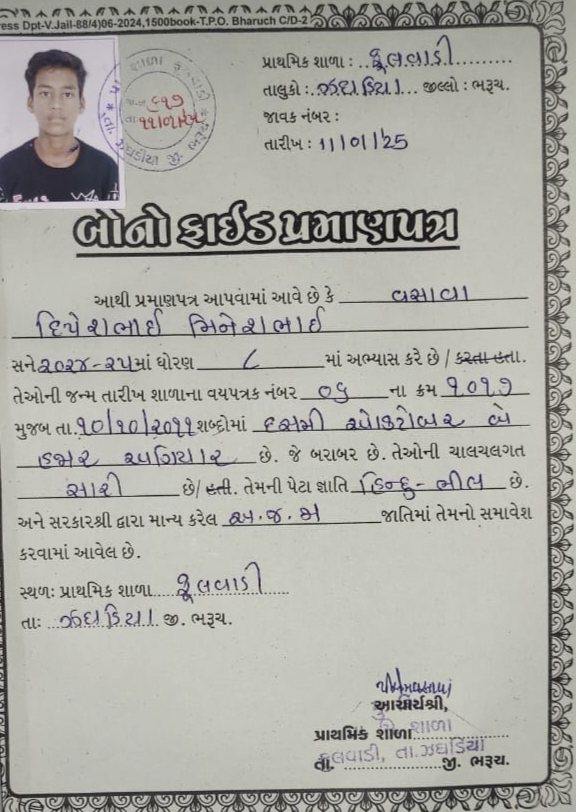 ress Dpt-V.Jail-88/4)06-2024,1500book-T.P.O. Bharuch C/D-2
પ્રાથમિક શાળા : ફૂલવાડી
તાલુકો : ઝઘડિયા જીલ્લો : ભરૂચ.
જાવક નંબર :
તારીખ : 11/01/25
૬૧૭
બોનોફાઈડ પ્રમાણપત્ર
આથી પ્રમાણપત્ર આપવામાં આવે છે કે વસાવા
દિપેશભાઈ મિનેશભાઈ
સને ૨૦૨૪-૨૫ માં ધોરણ ૮ માં અભ્યાસ કરે છે / કરતા હતા.
તેઓની જન્મ તારીખ શાળાના વયપત્રક નંબર ૦૬ ના ક્રમ ૧૦૧૭
મુજબ તા. ૧૦/૧૦/૨૦૧૧ શબ્દોમાં દસમી ઓક્ટોબર બે
હજાર અગિયાર છે. જે બરાબર છે. તેઓની ચાલચલગત
સારી છે/ હતી. તેમની પેટા જ્ઞાતિ હિન્દુ-ભીલ છે.
અને સરકારશ્રી દ્વારા માન્ય કરેલ અ.જ.જા જાતિમાં તેમનો સમાવેશ
કરવામાં આવેલ છે.
સ્થળ: પ્રાથમિક શાળા ફૂલવાડી
તા: ઝઘડિયા જી. ભરૂચ.
આચાર્યશ્રી,
પ્રાથમિક શાળા શાળા
ફુલવાડી, તા.ઝઘડિયા
તા. જી. ભરૂચ.